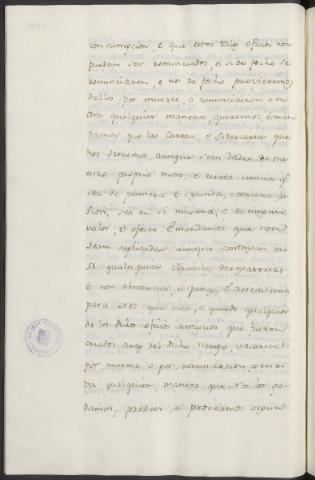 consumpcion, e que estos tales oficios non
puedan ser renunciados, e si de fecho se
renunciaren, e nos de fecho proveieremos
dellos por muerte, o renunciacion o en
otra qualquier manera, queremos é man
damos que las cartas, é sobrecartas que
nos dieremos aunque sean dadas de nu
estro proprio motu, e cierta ciencia
sea de primera e segunda, e tercera ju
sion, sea en si ninguna, é de ningun
valor, é efecto É mandamos que non
sean cumplidas aunque contengan en
si qualesquier clausulas derogatorias
é non obstancias, e penas, É retenemos
para Nos que cada, é quando qualquier
de los dichos oficios antiguos que fueron
criados antes del dicho tiempo, vacaren
por muerte o por renunciacion, o en o
tra qualquier manera que Nos los po
damos, proveer, é proveamos segunt